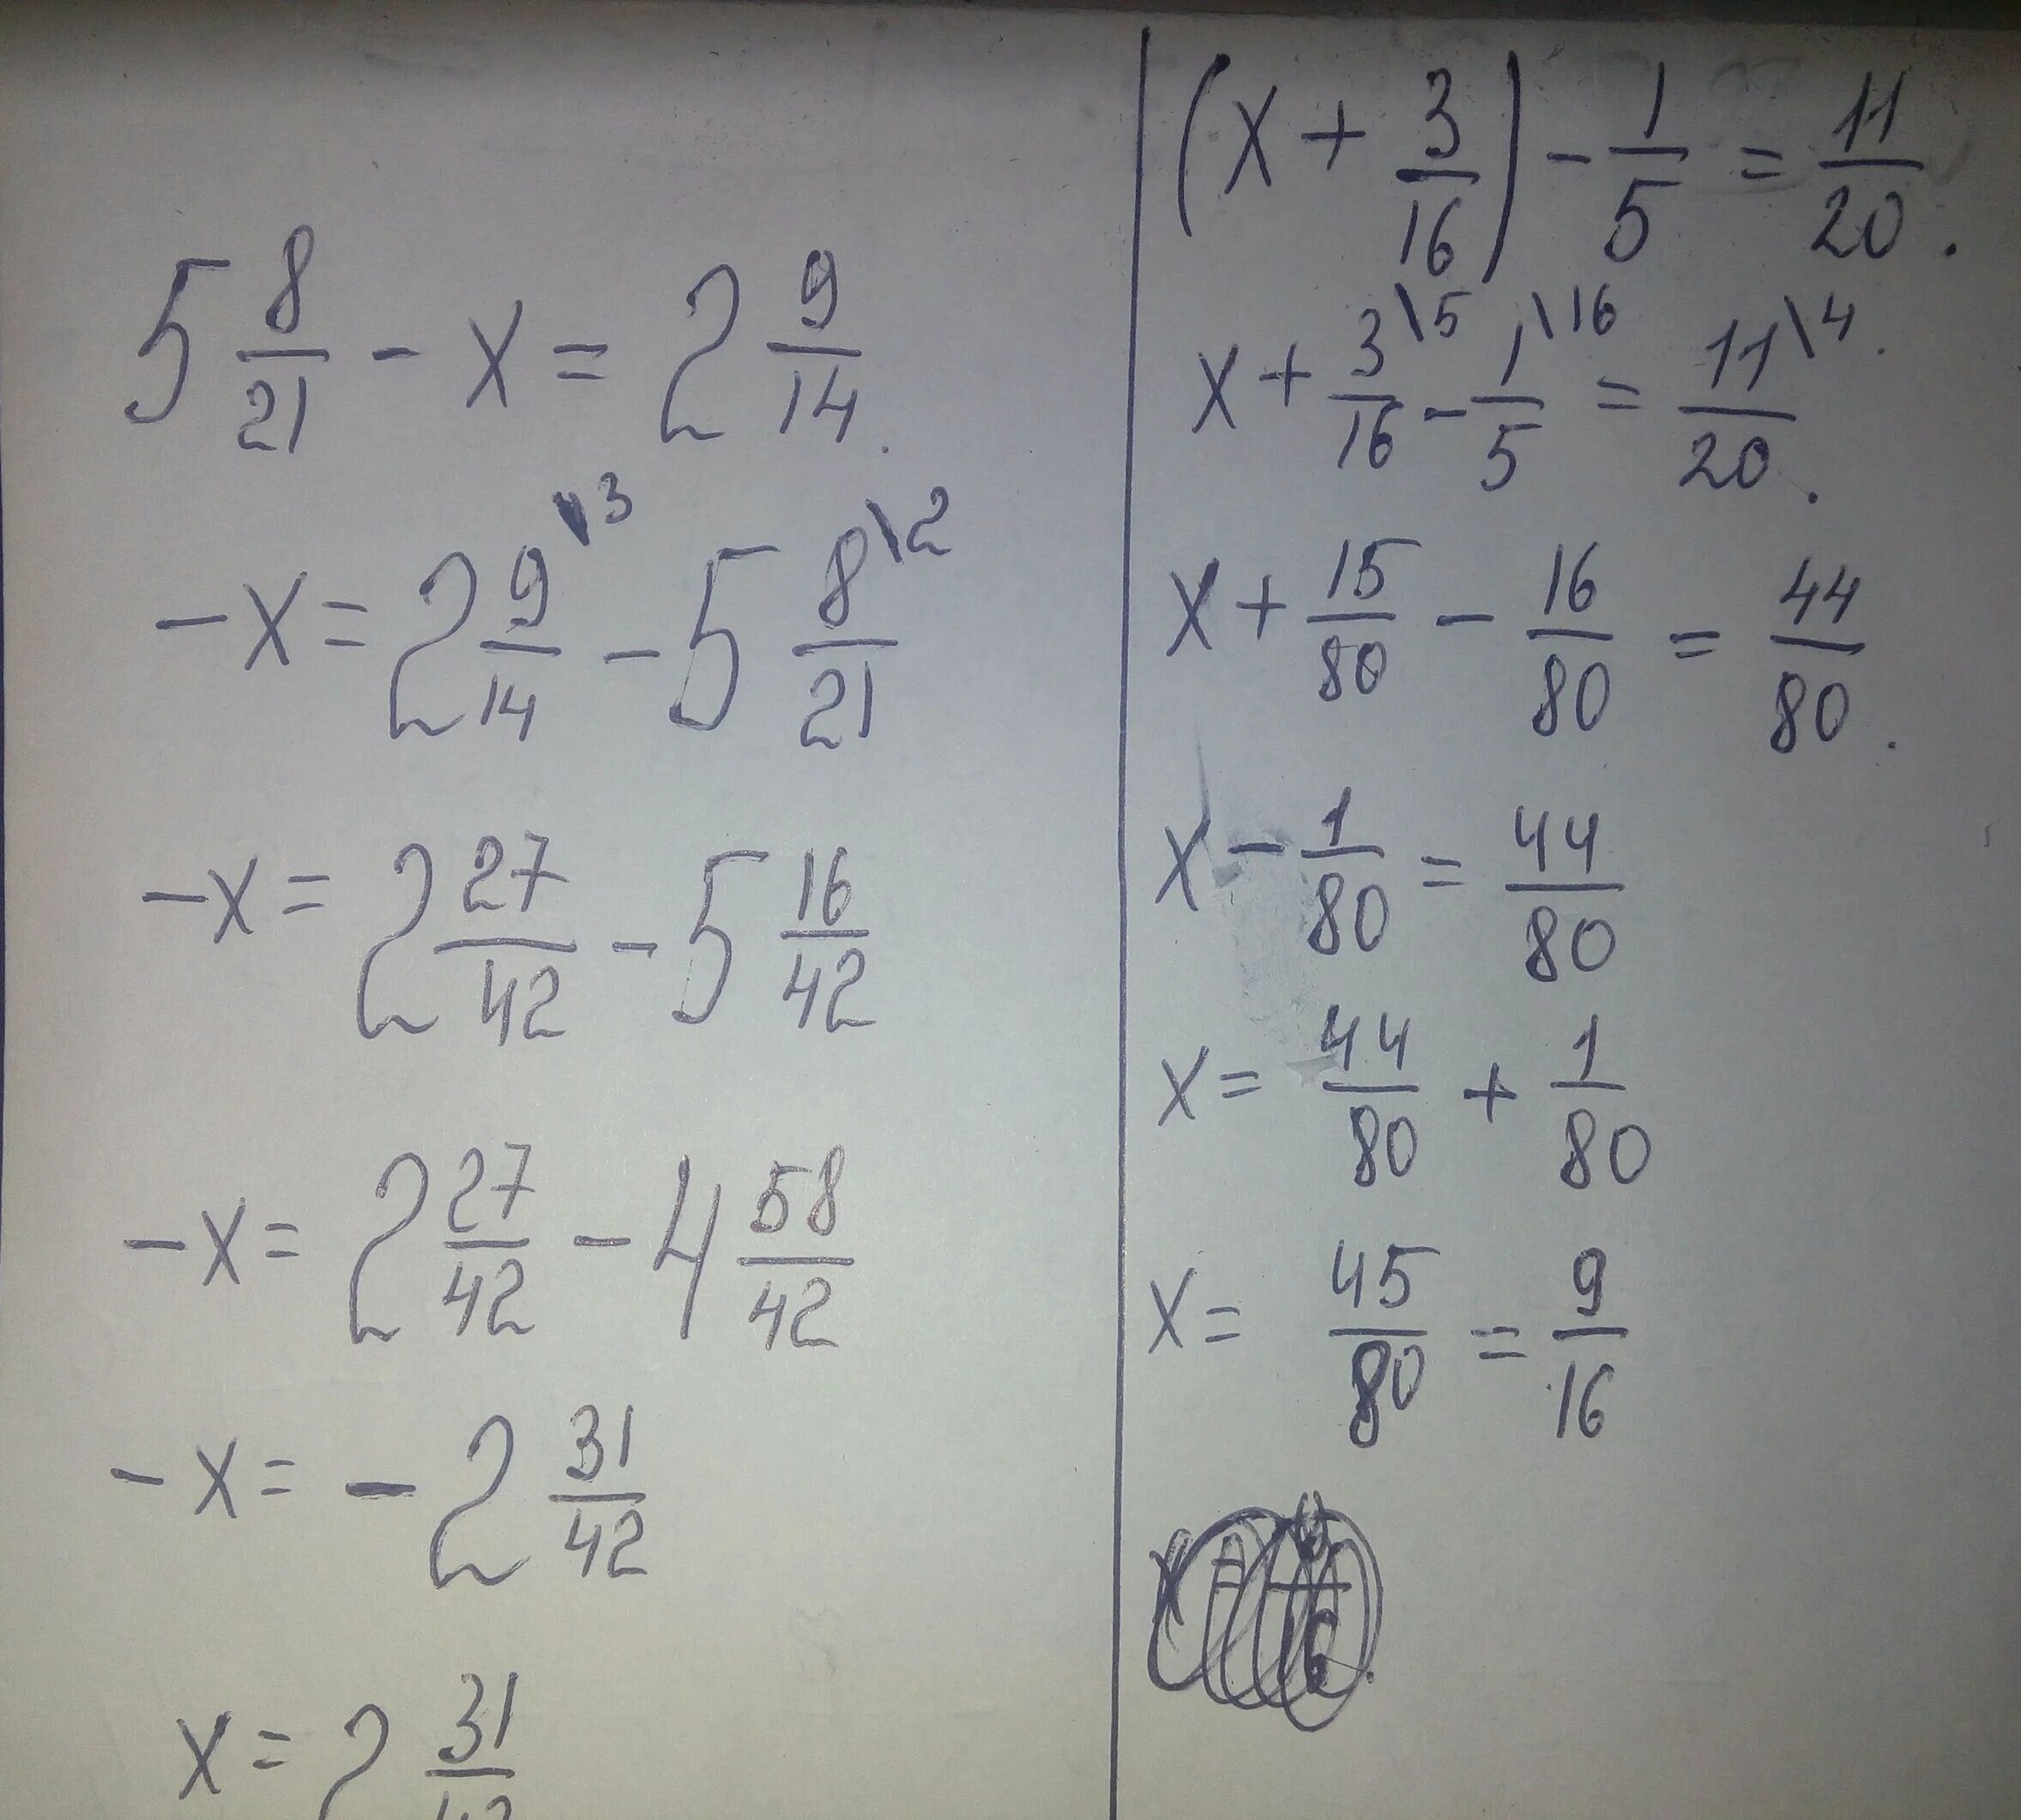 5 8/21 - x = 2 9/14.
-x = 2 9/14 \3 - 5 8/21 \2
-x = 2 27/42 - 5 16/42
-x = 2 27/42 - 4 58/42
-x = - 2 31/42
x = 2 31/42
(x + 3/16) - 1/5 = 11/20.
x + 3/16 \5 - 1/5 \16 = 11/20 \4.
x + 15/80 - 16/80 = 44/80.
x - 1/80 = 44/80
x = 44/80 + 1/80
x = 45/80 = 9/16